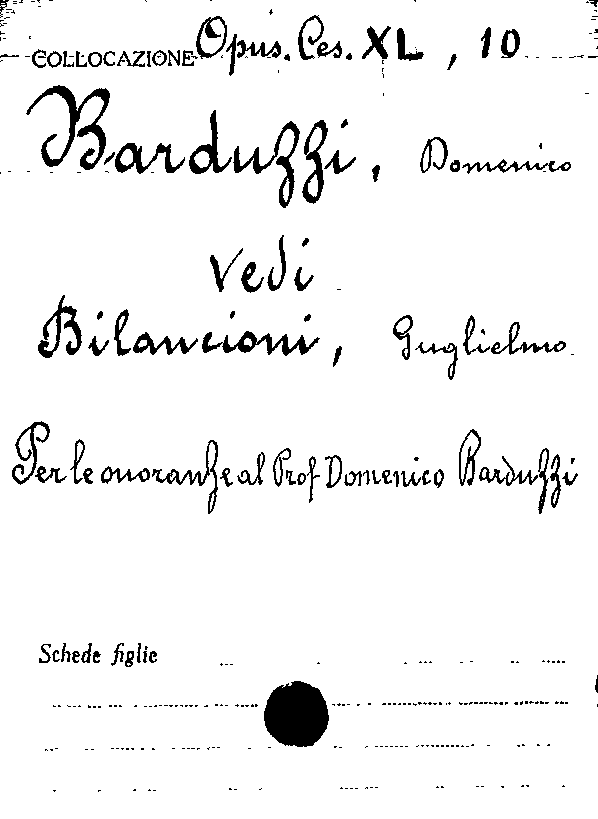 COLLOCAZIONE Opus. Ces. XL, 10
Barduzzi, Domenico
Vedi
Bilancioni, Guglielmo
Per le onoranze al Prof Domenico Barduzzi
Schede figlie